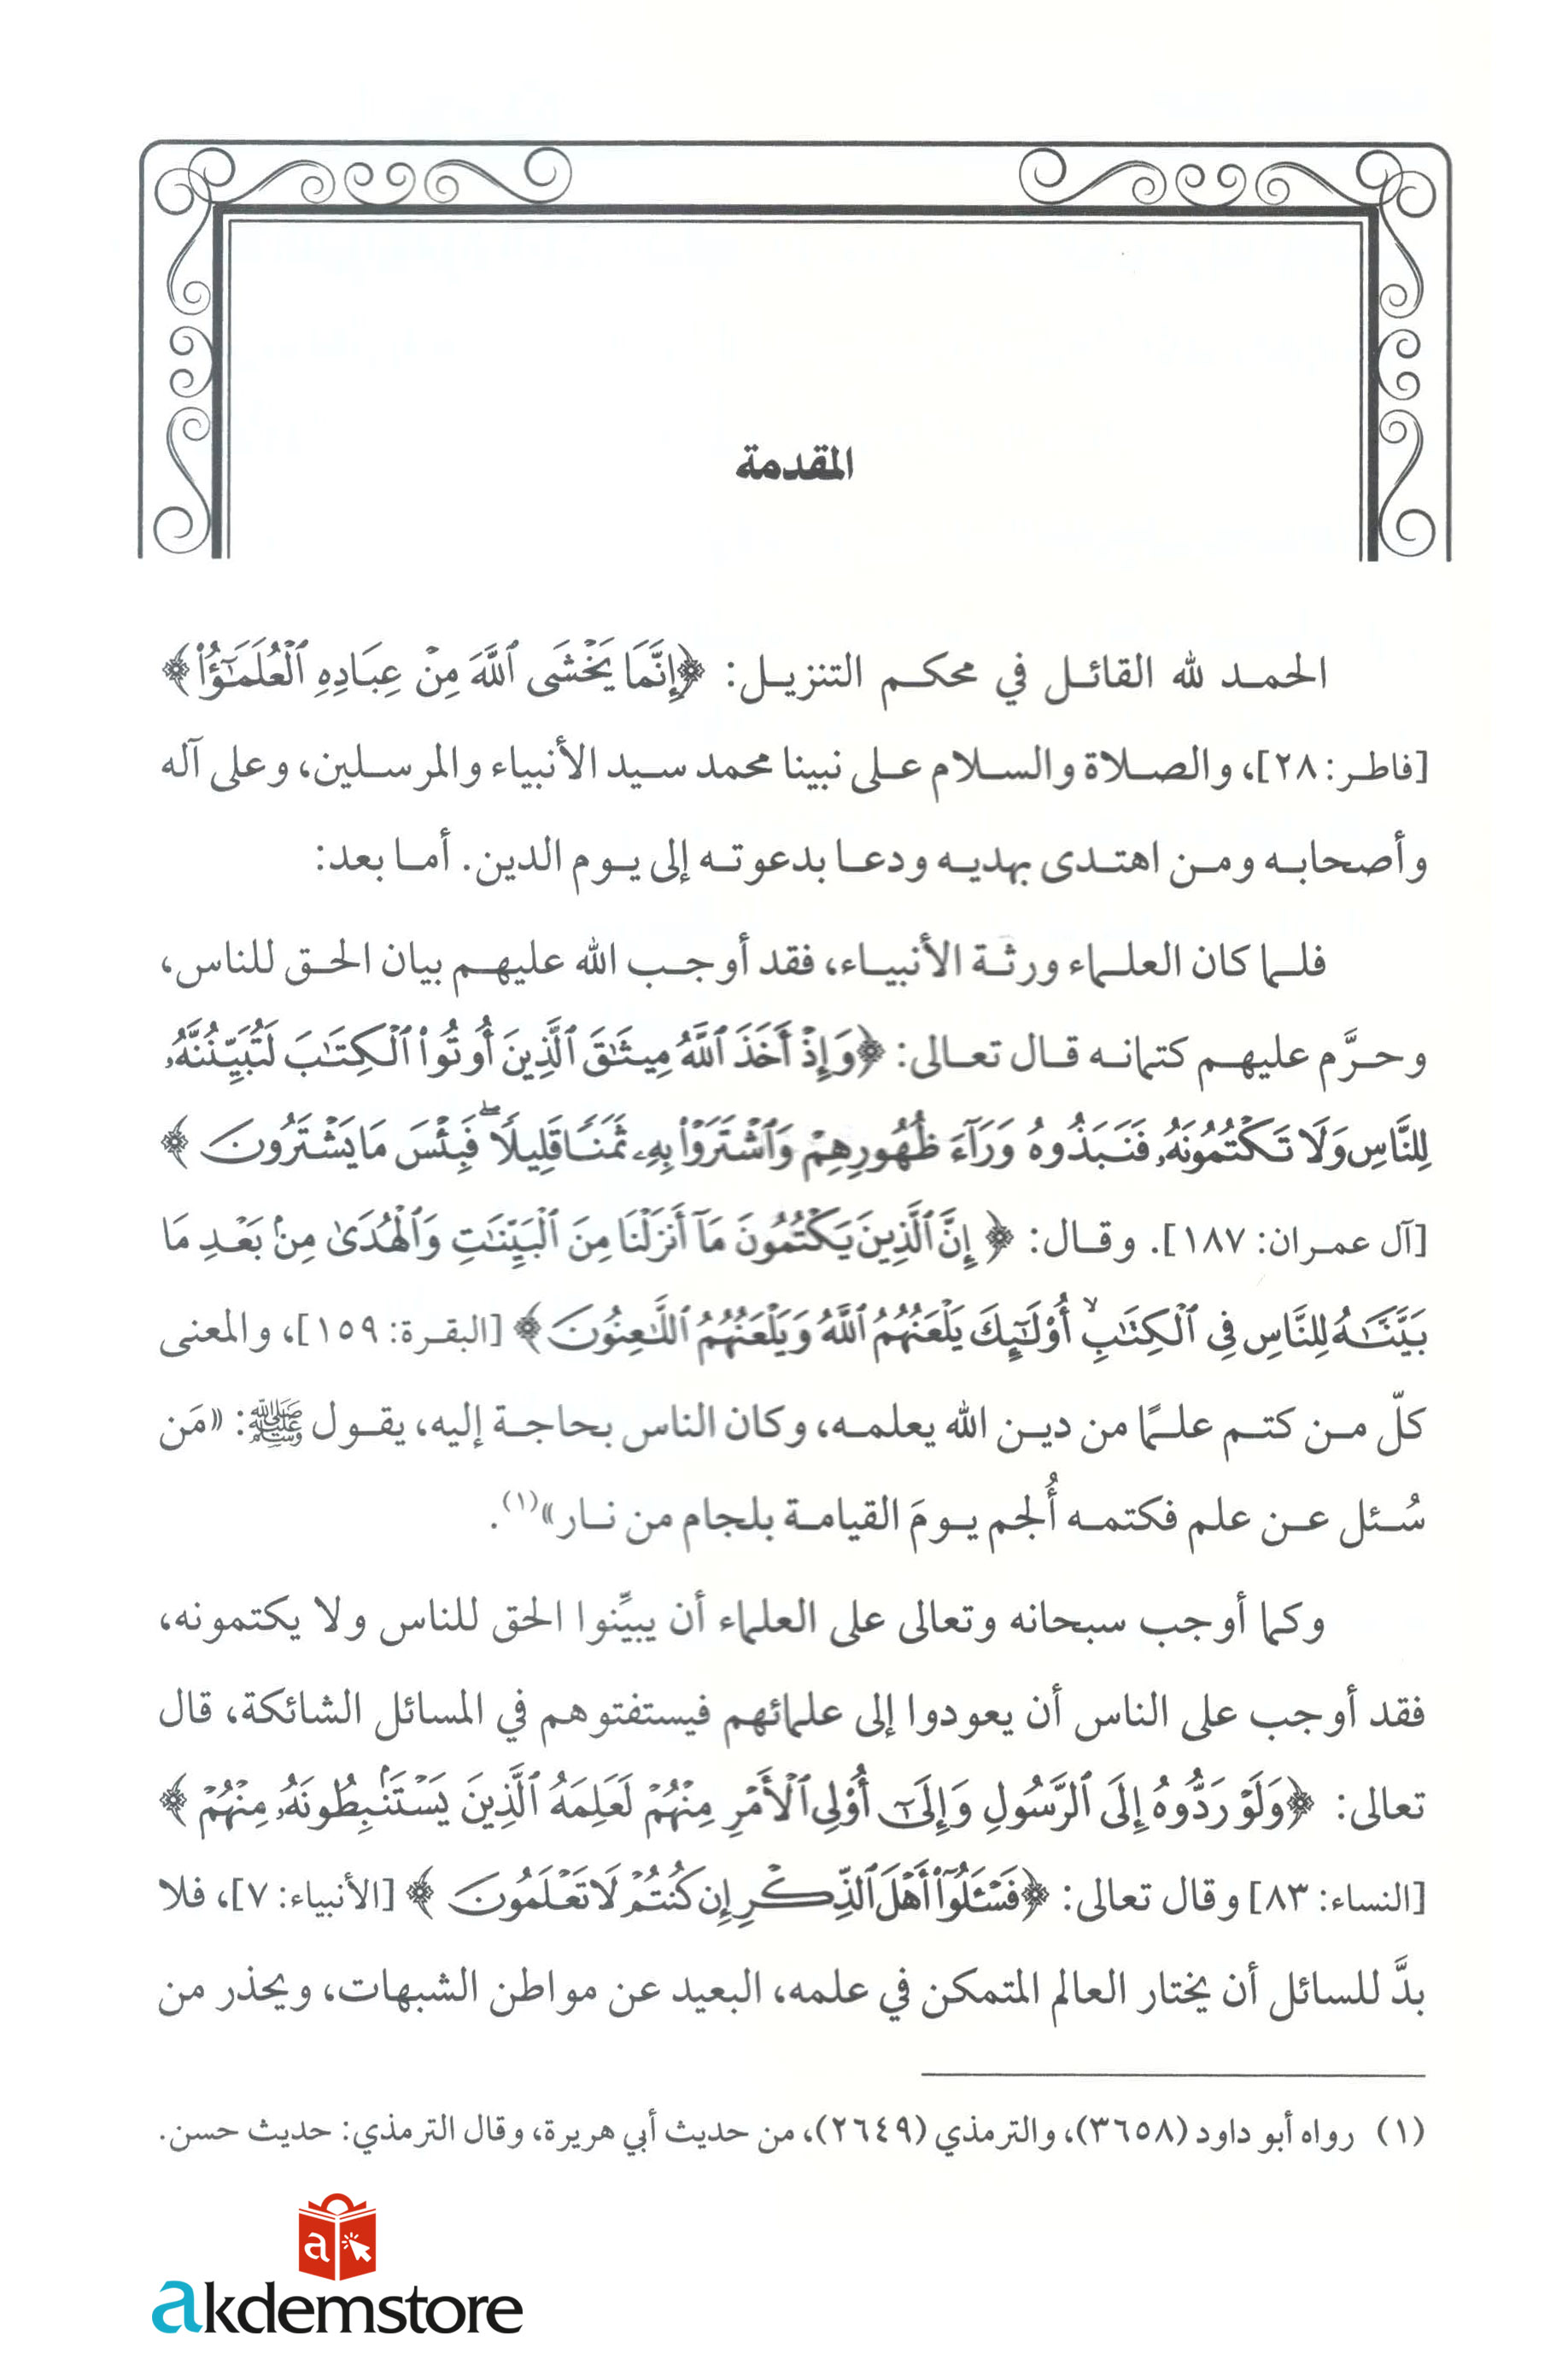 المقدمة
الحمد لله القائل في محكم التنزيل: ﴿إِنَّمَا يَخْشَى ٱللَّهَ مِنْ عِبَادِهِ ٱلْعُلَمَـٰٓؤُا۟﴾
[فاطر: ٢٨]، والصلاة والسلام على نبينا محمد سيد الأنبياء والمرسلين، وعلى آله
وأصحابه ومن اهتدى بهديه ودعا بدعوته إلى يوم الدين. أما بعد:
فلما كان العلماء ورثة الأنبياء، فقد أوجب الله عليهم بيان الحق للناس،
وحرَّم عليهم كتمانه قال تعالى: ﴿وَإِذْ أَخَذَ ٱللَّهُ مِيثَـٰقَ ٱلَّذِينَ أُوتُوا۟ ٱلْكِتَـٰبَ لَتُبَيِّنُنَّهُۥ
لِلنَّاسِ وَلَا تَكْتُمُونَهُۥ فَنَبَذُوهُ وَرَآءَ ظُهُورِهِمْ وَٱشْتَرَوْا۟ بِهِۦ ثَمَنًا قَلِيلًا ۖ فَبِئْسَ مَا يَشْتَرُونَ ﴾
[آل عمران: ١٨٧]. وقال: ﴿ إِنَّ ٱلَّذِينَ يَكْتُمُونَ مَآ أَنزَلْنَا مِنَ ٱلْبَيِّنَـٰتِ وَٱلْهُدَىٰ مِنۢ بَعْدِ مَا
بَيَّنَّـٰهُ لِلنَّاسِ فِى ٱلْكِتَـٰبِ ۙ أُو۟لَـٰٓئِكَ يَلْعَنُهُمُ ٱللَّهُ وَيَلْعَنُهُمُ ٱللَّـٰعِنُونَ ﴾ [البقرة: ١٥٩]، والمعنى
كلّ من كتم علمًا من دين الله يعلمه، وكان الناس بحاجة إليه، يقول ﷺ: «مَن
سُئل عن علم فكتمه أُلجم يومَ القيامة بلجام من نار»(١).
وكما أوجب سبحانه وتعالى على العلماء أن يبيِّنوا الحق للناس ولا يكتمونه،
فقد أوجب على الناس أن يعودوا إلى علمائهم فيستفتوهم في المسائل الشائكة، قال
تعالى: ﴿وَلَوْ رَدُّوهُ إِلَى ٱلرَّسُولِ وَإِلَىٰٓ أُو۟لِى ٱلْأَمْرِ مِنْهُمْ لَعَلِمَهُ ٱلَّذِينَ يَسْتَنۢبِطُونَهُۥ مِنْهُمْ ﴾
[النساء: ٨٣] وقال تعالى: ﴿فَسْـَٔلُوٓا۟ أَهْلَ ٱلذِّكْرِ إِن كُنتُمْ لَا تَعْلَمُونَ ﴾ [الأنبياء: ٧]، فلا
بدَّ للسائل أن يختار العالم المتمكن في علمه، البعيد عن مواطن الشبهات، ويحذر من
(١) رواه أبو داود (٣٦٥٨)، والترمذي (٢٦٤٩)، من حديث أبي هريرة، وقال الترمذي: حديث حسن.
a
akdemstore